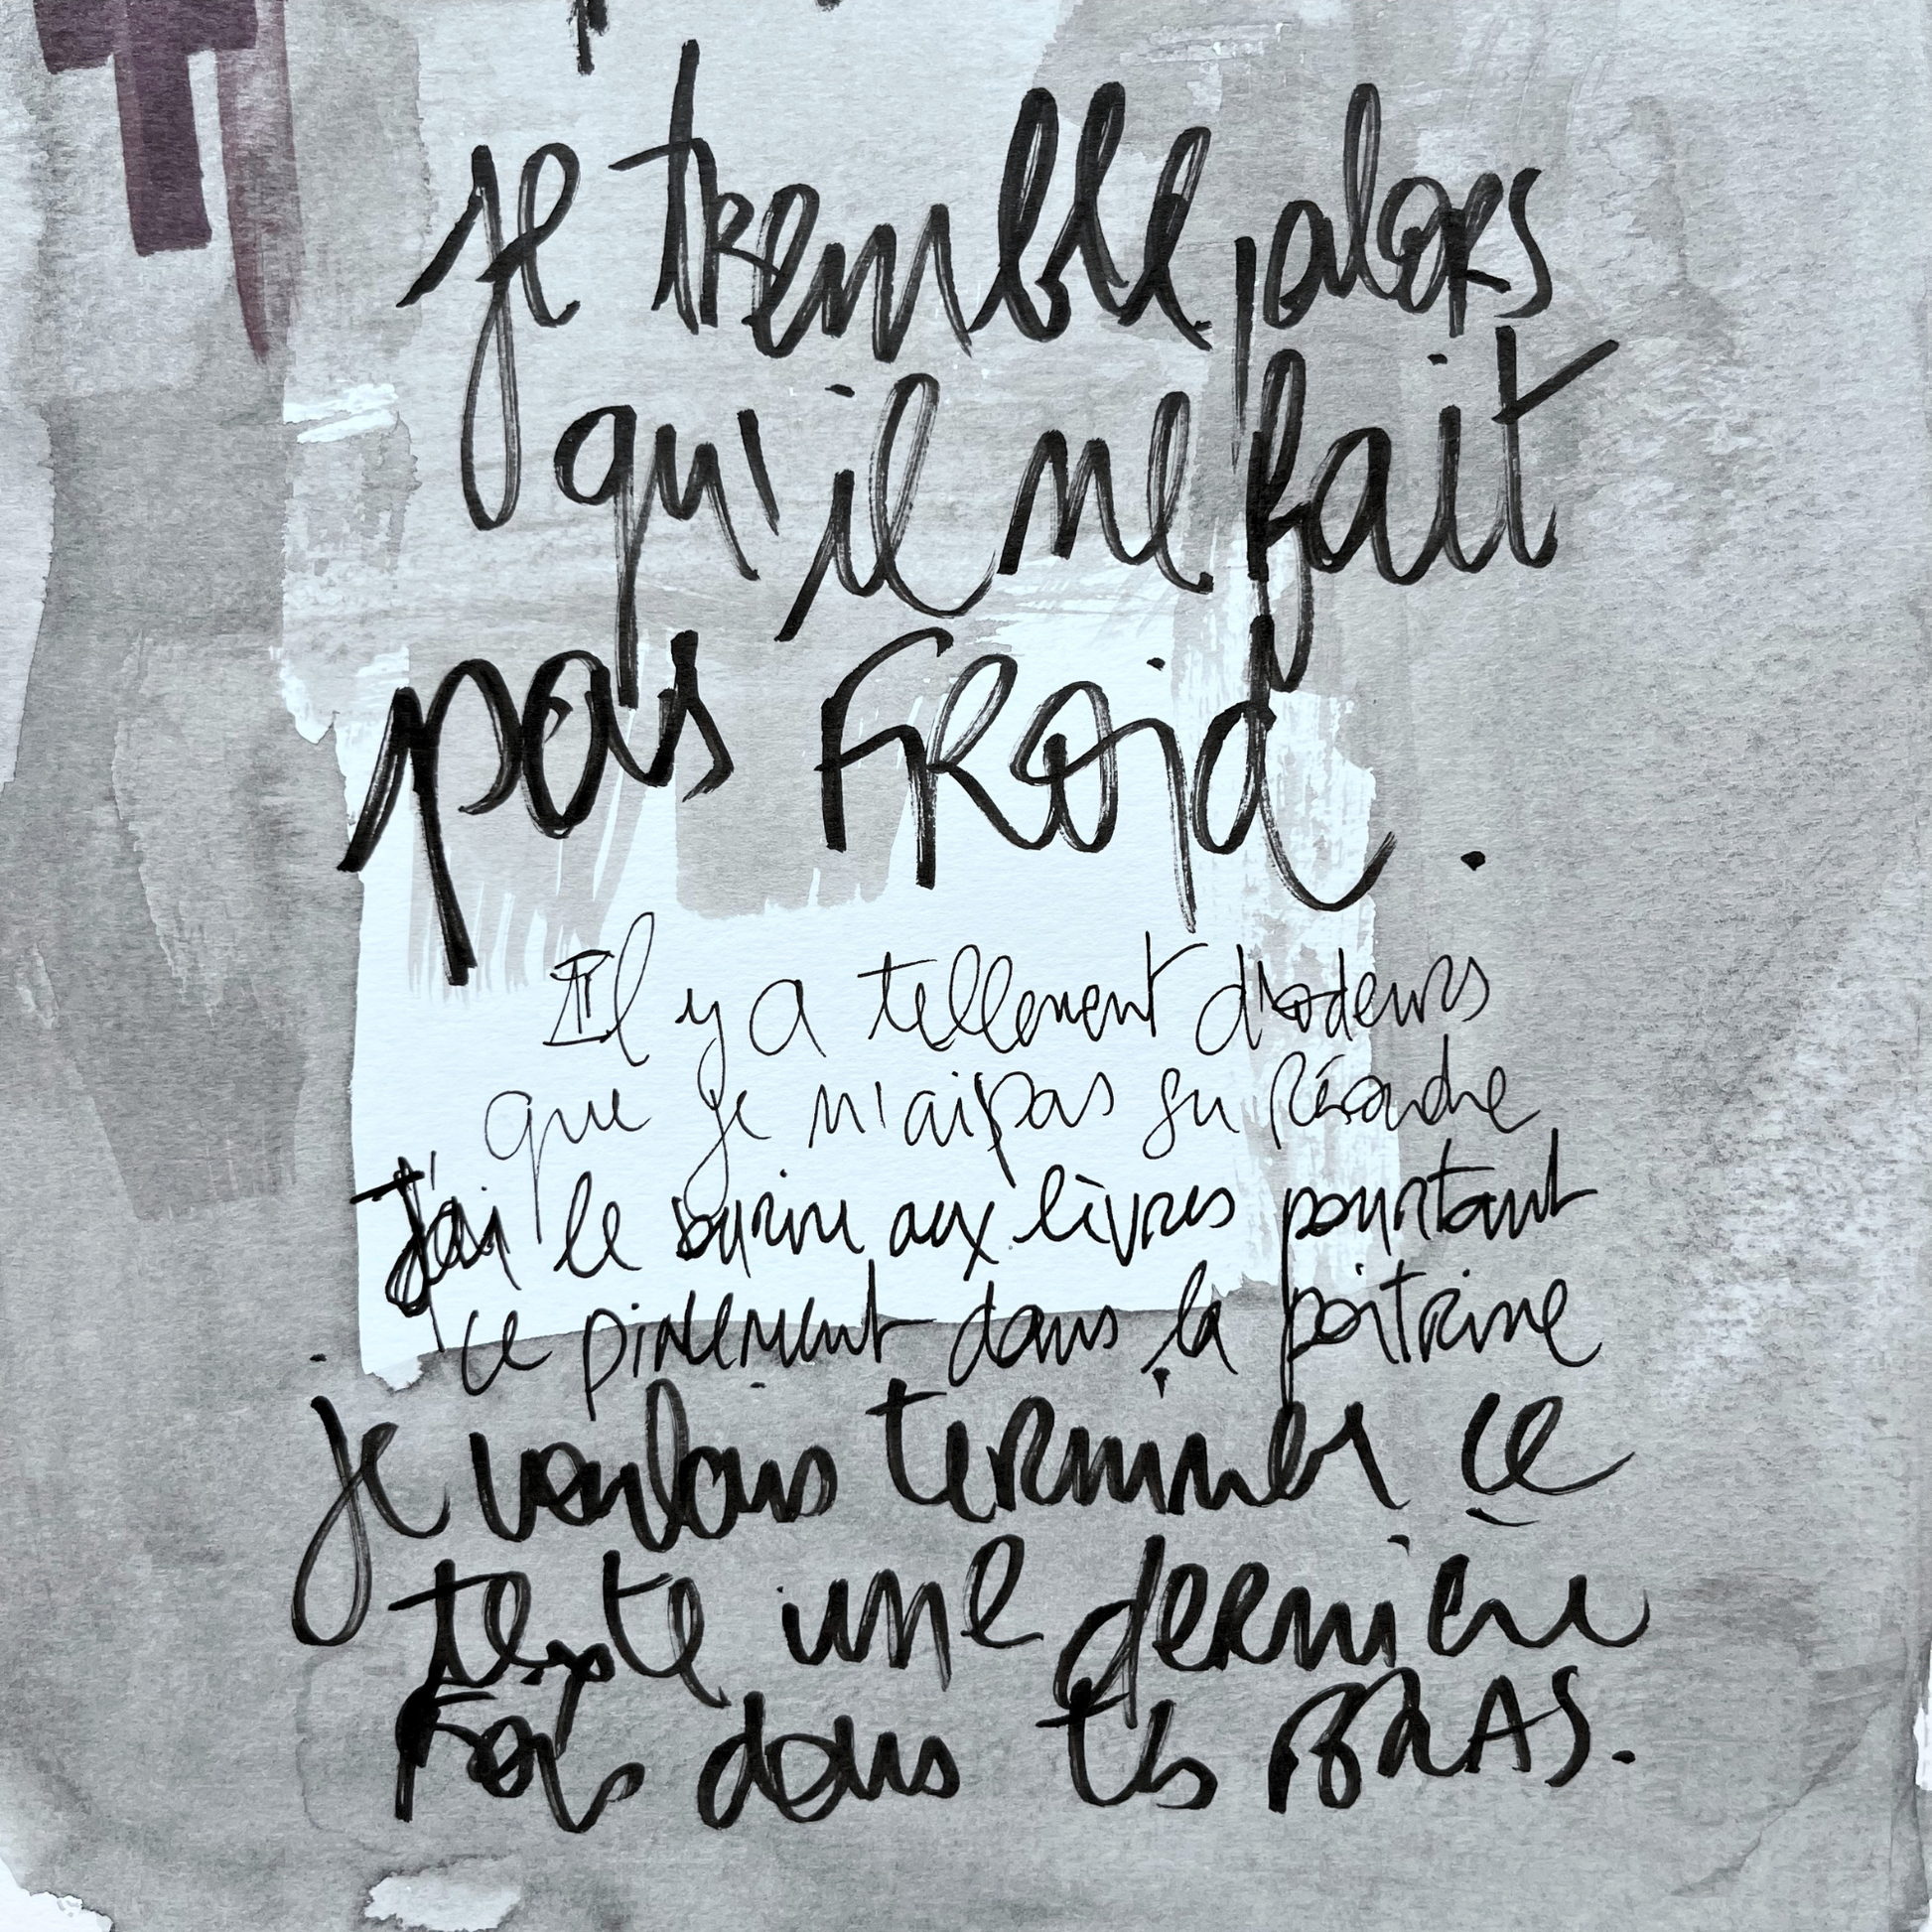 je tremble, alors
qu'il ne fait
pas froid.
Il y a tellement d'odeurs
que je n'ai pas su
J'ai le sourire aux lèvres pourtant
ce pincement dans la poitrine
je voulais terminer ce
texte une dernière
Fois dans tes BRAS.